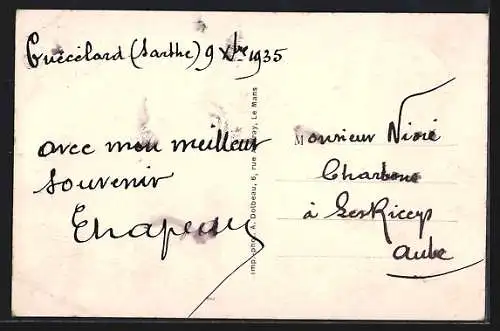 Guécélard (Sarthe) 9 Xbre 1935
avec mon meilleur
souvenir
Chapeau
Imp. phot. A. Dolbeau, 6, rue Le Mans
Monsieur
à Les Riceys
Aube